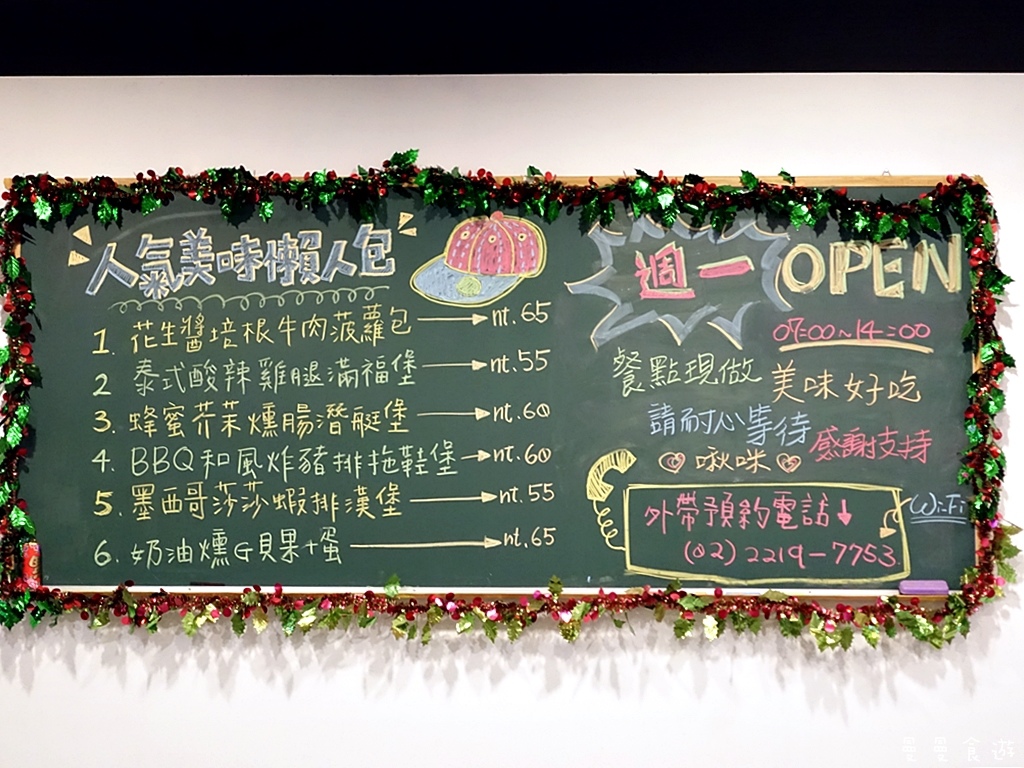 人氣美味懶人包
1. 花生醬培根牛肉菠蘿包 nt.65
2 泰式酸辣雞腿滿福堡 nt.55
3. 蜂蜜芥茉燻腸潛艇堡 nt.60
4. BBQ和風炸豬排拖鞋堡 nt.60
5. 墨西哥莎莎蝦排漢堡 nt.55
6. 奶油燻G貝果+蛋 nt.65
週一 OPEN
07:00~14:00
餐點現做 美味好吃
請耐心等待 感謝支持
啾咪
外帶預約電話↓
(02) 2219-7753
Wi-Fi
星星食遊